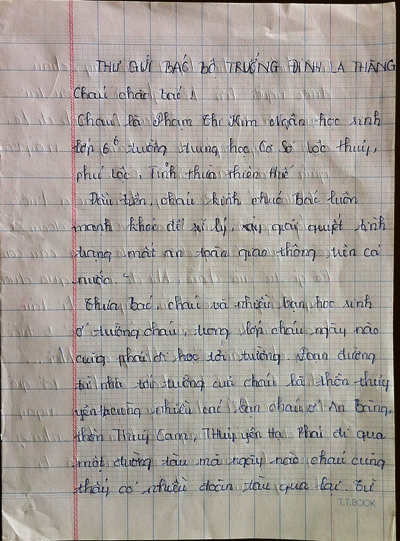 THƯ GỬI BÁC BỘ TRƯỞNG ĐINH LA THĂNG
Cháu chào bác !
Cháu là Phạm Thị Kim Ngân học sinh
lớp 6⁶ trường trung học Cơ Sở Lộc thuỷ,
phú Lộc, Tỉnh thừa thiên Huế
Đầu tiên, cháu kính chúc bác luôn
mạnh khoẻ để sử lý, giải quyết tình
trạng mất an toàn giao thông trên cả
nước.
Thưa bác, cháu và nhiều bạn học sinh
ở trường cháu, trong lớp cháu ngày nào
cũng phải đi học tới trường. Đoạn đường
từ nhà tới trường của cháu là thôn thuỷ
yên thượng nhiều các bạn cháu ở An Bàng,
thôn Thuỷ Cam, THuỷ yên Hạ Phải đi qua
một đường tàu mà ngày nào cháu cũng
thấy có nhiều đoàn tàu qua lại. Từ
T.T.BOOK